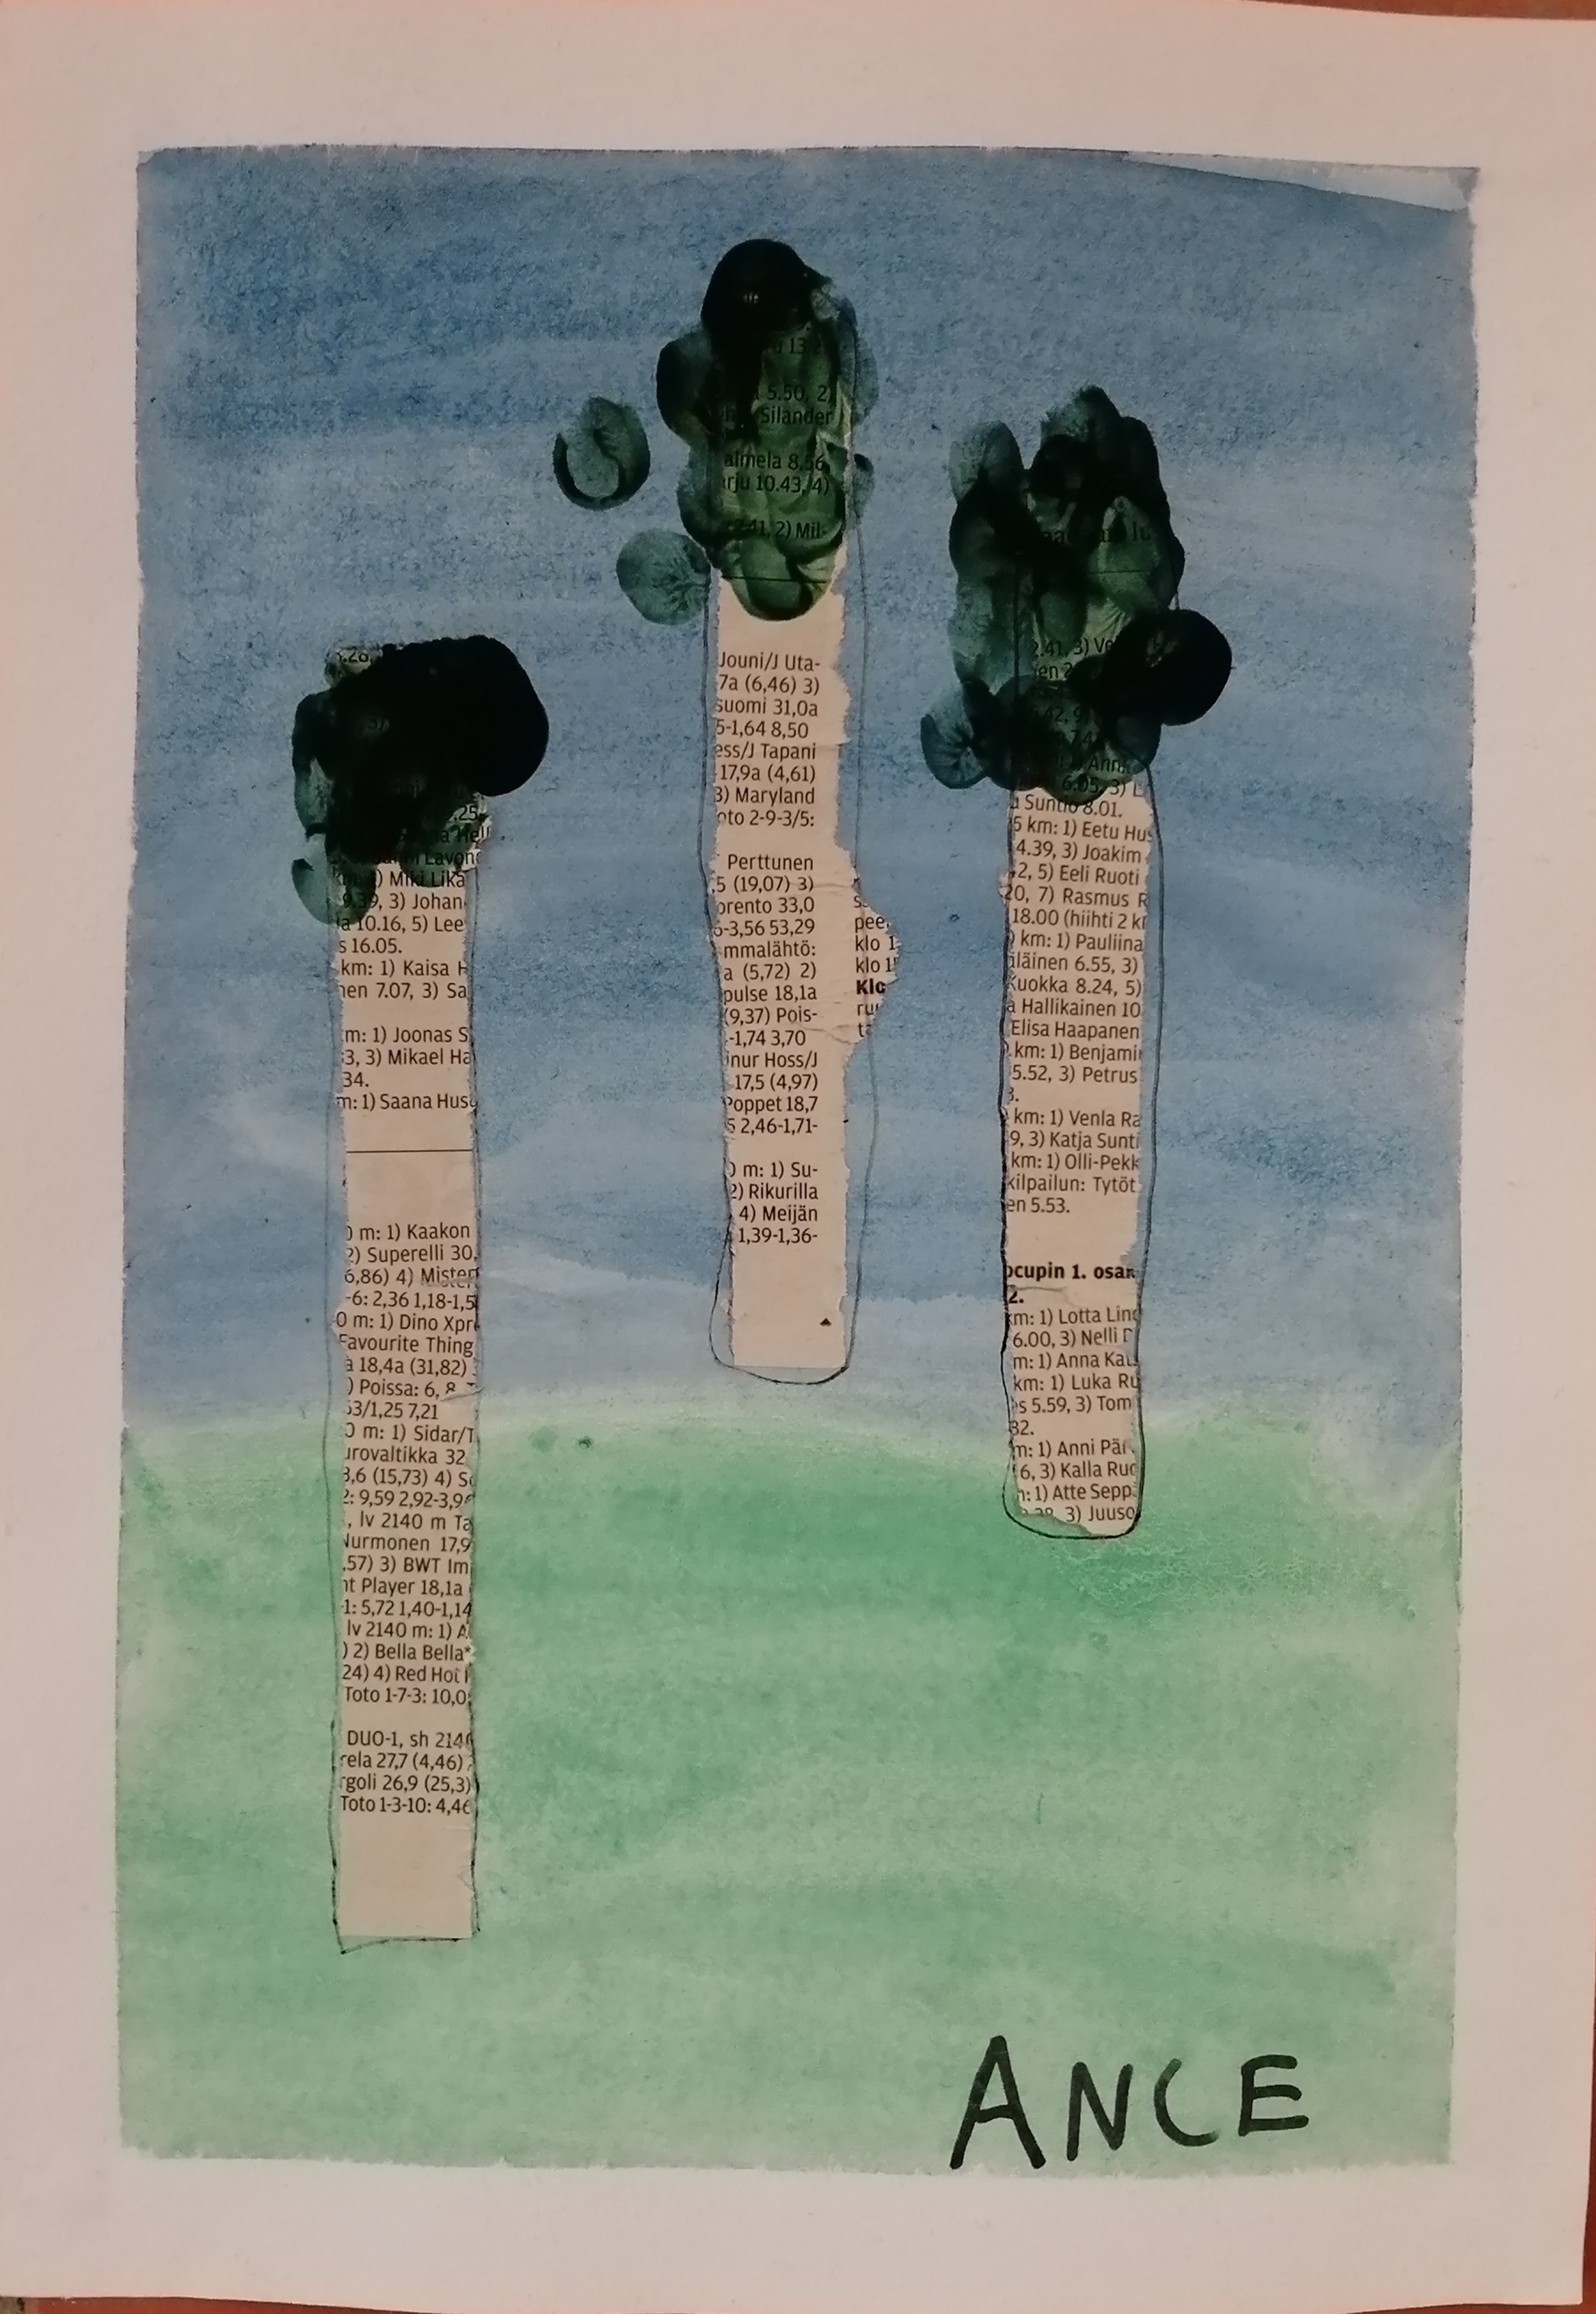 Silander
almela 8,56,
10.43, 4)
2) Mil-
Jouni/J Uta-
7a (6,46) 3)
suomi 31,0a
5-1,64 8,50
ess/J Tapani
17,9a (4,61)
3) Maryland
oto 2-9-3/5:
Perttunen
,5 (19,07) 3)
orento 33,0
5-3,56 53,29
mmalähtö:
a (5,72) 2)
pulse 18,1a
(9,37) Pois-
-1,74 3,70
inur Hoss/J
17,5 (4,97)
Poppet 18,7
5 2,46-1,71-
0 m: 1) Su-
2) Rikurilla
4) Meijän
1,39-1,36-
pee
klo 1
klo 1
Klo
Lavon
Miki Lika
3) Johan
10.16, 5) Lee
s 16.05.
km: 1) Kaisa H
nen 7.07, 3) Sa
m: 1) Joonas S
3, 3) Mikael Ha
34.
m: 1) Saana Hus
0 m: 1) Kaakon
2) Superelli 30,
6,86) 4) Mister
-6: 2,36 1,18-1,5
0 m: 1) Dino Xpr
Favourite Thing
a 18,4a (31,82)
) Poissa: 6, 8
53/1,25 7,21
0 m: 1) Sidar/T
urovaltikka 32
3,6 (15,73) 4) S
2: 9,59 2,92-3,9
, lv 2140 m Ta
Nurmonen 17,9
,57) 3) BWT Im
nt Player 18,1a
1: 5,72 1,40-1,14
lv 2140 m: 1) A
) 2) Bella Bella*
24) 4) Red Hot
Toto 1-7-3: 10,0
DUO-1, sh 2140
rela 27,7 (4,46)
rgoli 26,9 (25,3)
Toto 1-3-10: 4,46
Ann
6.05, 3) L
Suntio 8.01.
5 km: 1) Eetu Hus
4.39, 3) Joakim
2, 5) Eeli Ruoti
20, 7) Rasmus R
18.00 (hiihti 2 k
km: 1) Pauliina
iläinen 6.55, 3)
Kuokka 8.24, 5)
a Hallikainen 10
Elisa Haapanen
km: 1) Benjami
5.52, 3) Petrus
3.
km: 1) Venla Ra
9, 3) Katja Sunti
km: 1) Olli-Pekk
kilpailun: Tytöt
en 5.53.
ocupin 1. osa
2.
km: 1) Lotta Lin
6.00, 3) Nelli
m: 1) Anna Kau
km: 1) Luka Ru
s 5.59, 3) Tom
32.
m: 1) Anni Pär
6, 3) Kalla Ruo
1) Atte Sepp
3) Juuso
ANCE